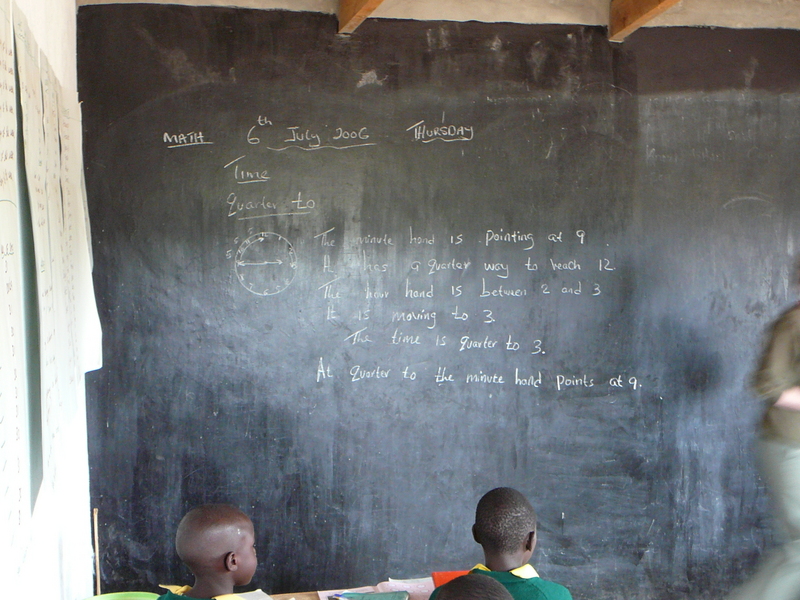 MATH 6th July 2006 THURSDAY
Time
Quarter to
The minute hand is pointing at 9.
It has a quarter way to reach 12.
The hour hand is between 2 and 3
It is moving to 3.
The time is quarter to 3.
At quarter to the minute hand points at 9.